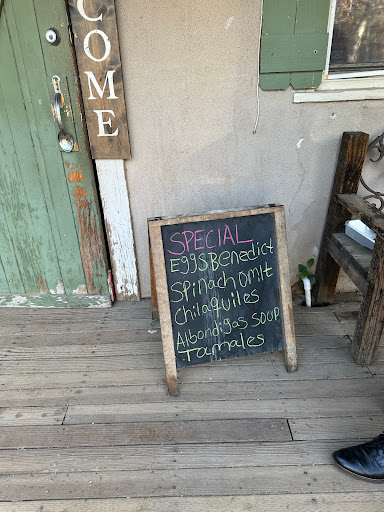 COME
SPECIAL
EggsBenedict
Spinach omlt
Chilaquiles
Albondigas soup
Tamales